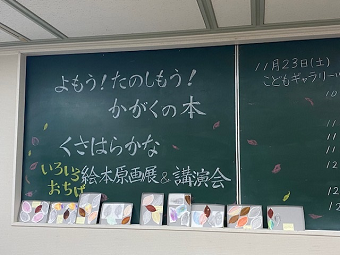 よもう！たのしもう！
かがくの本
くさはらかな
いろいろ
おちば
絵本原画展&講演会
11月23日(土)
こどもギャラリー
10
11
11
12
12